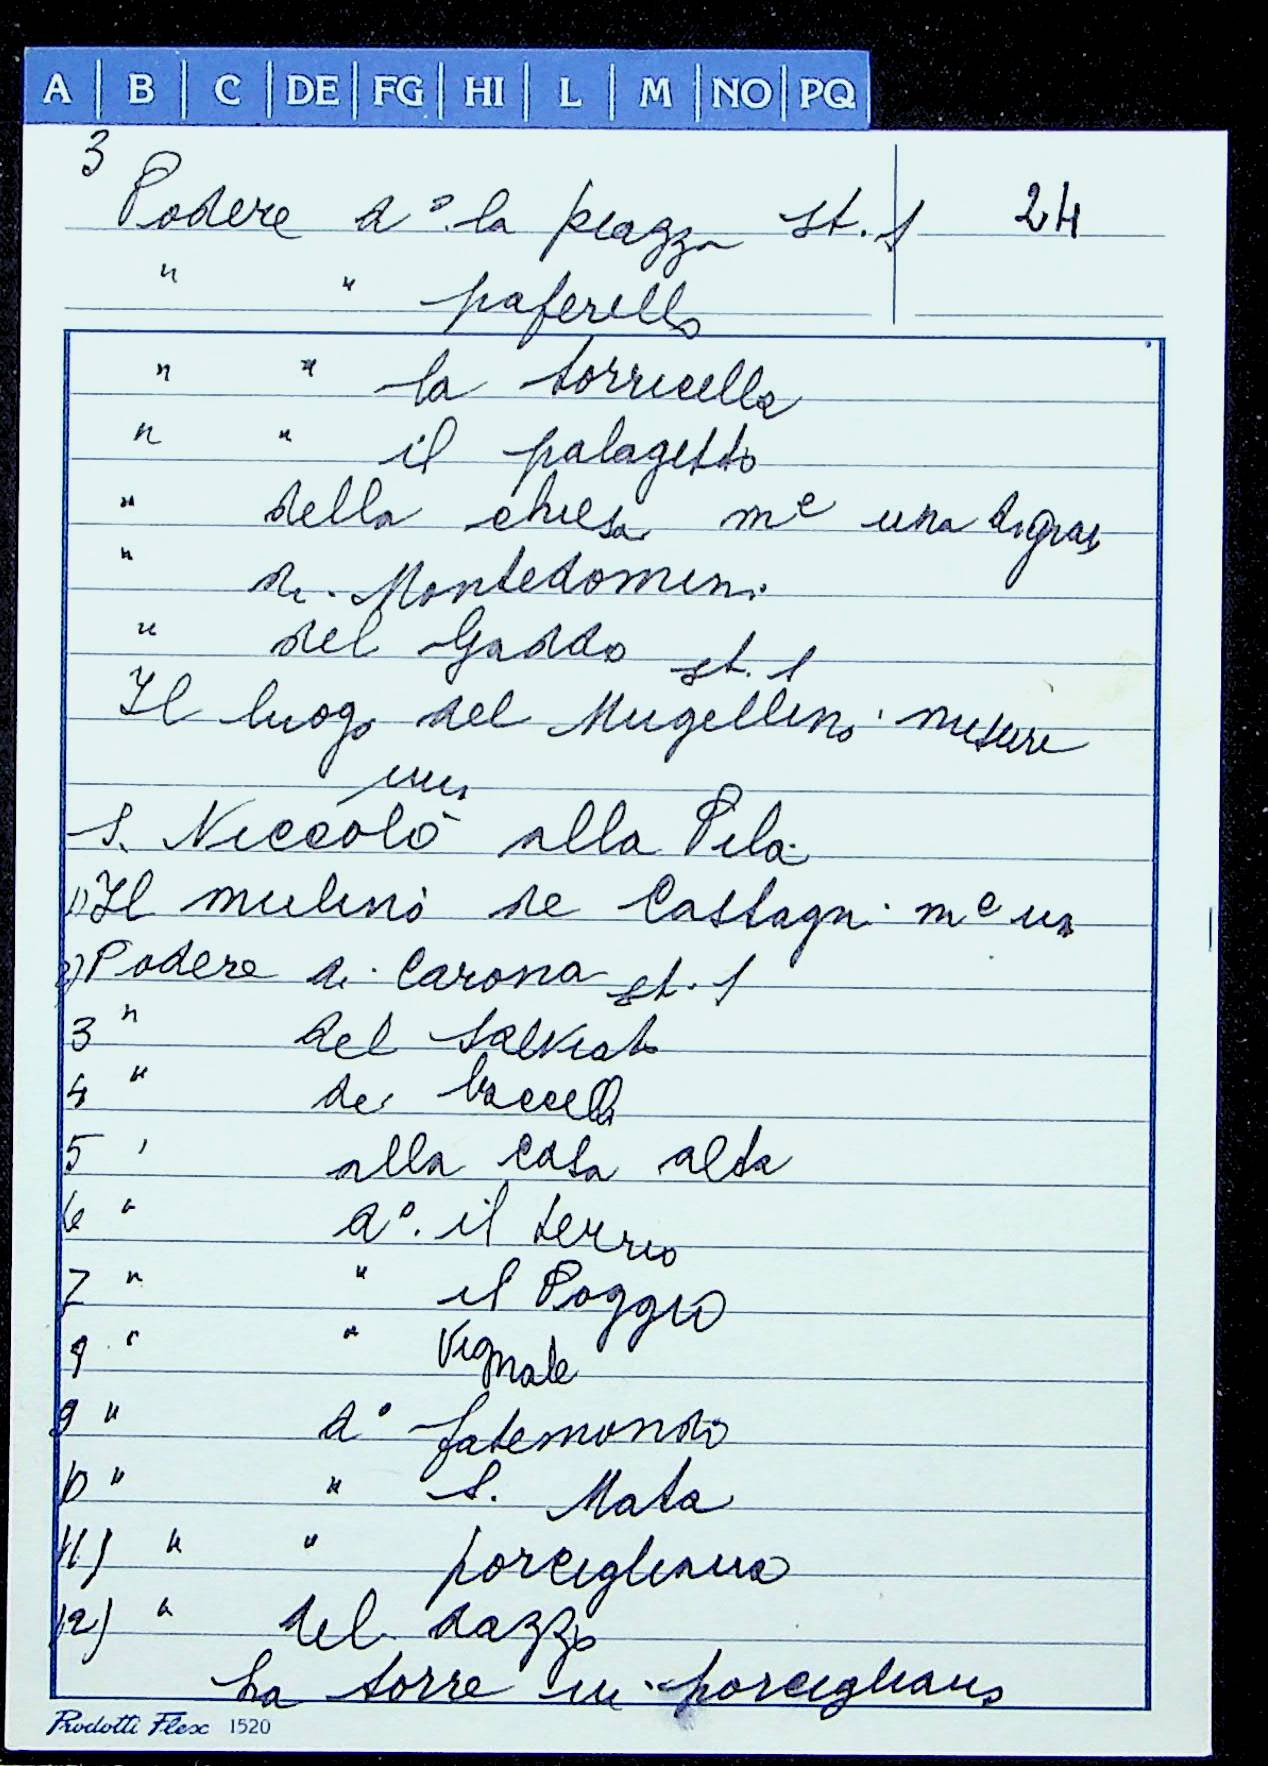 A B C DE FG HI L M NO PQ
3
Podere d°. la piazza st. 1 24
" " paferello
" " la torricella
" " il palagetto
" della chiesa me una
" di Montedomini
" del Gaddo st. 1
Il luogo del Mugellino misure
una
S. Niccolò alla Pila
1) Il mulino de Castagni me un
2) Podere di Carona st. 1
3 " del Salviati
4 " dei baccelli
5 " alla casa alta
6 " d°. il
7 " " il Poggio
8 " " Vignale
9 " d° fatemondi
10 " " S. Mata
11) " " porcigliano
12) " del dazzo
La torre in porcigliano
Prodotti Flex 1520